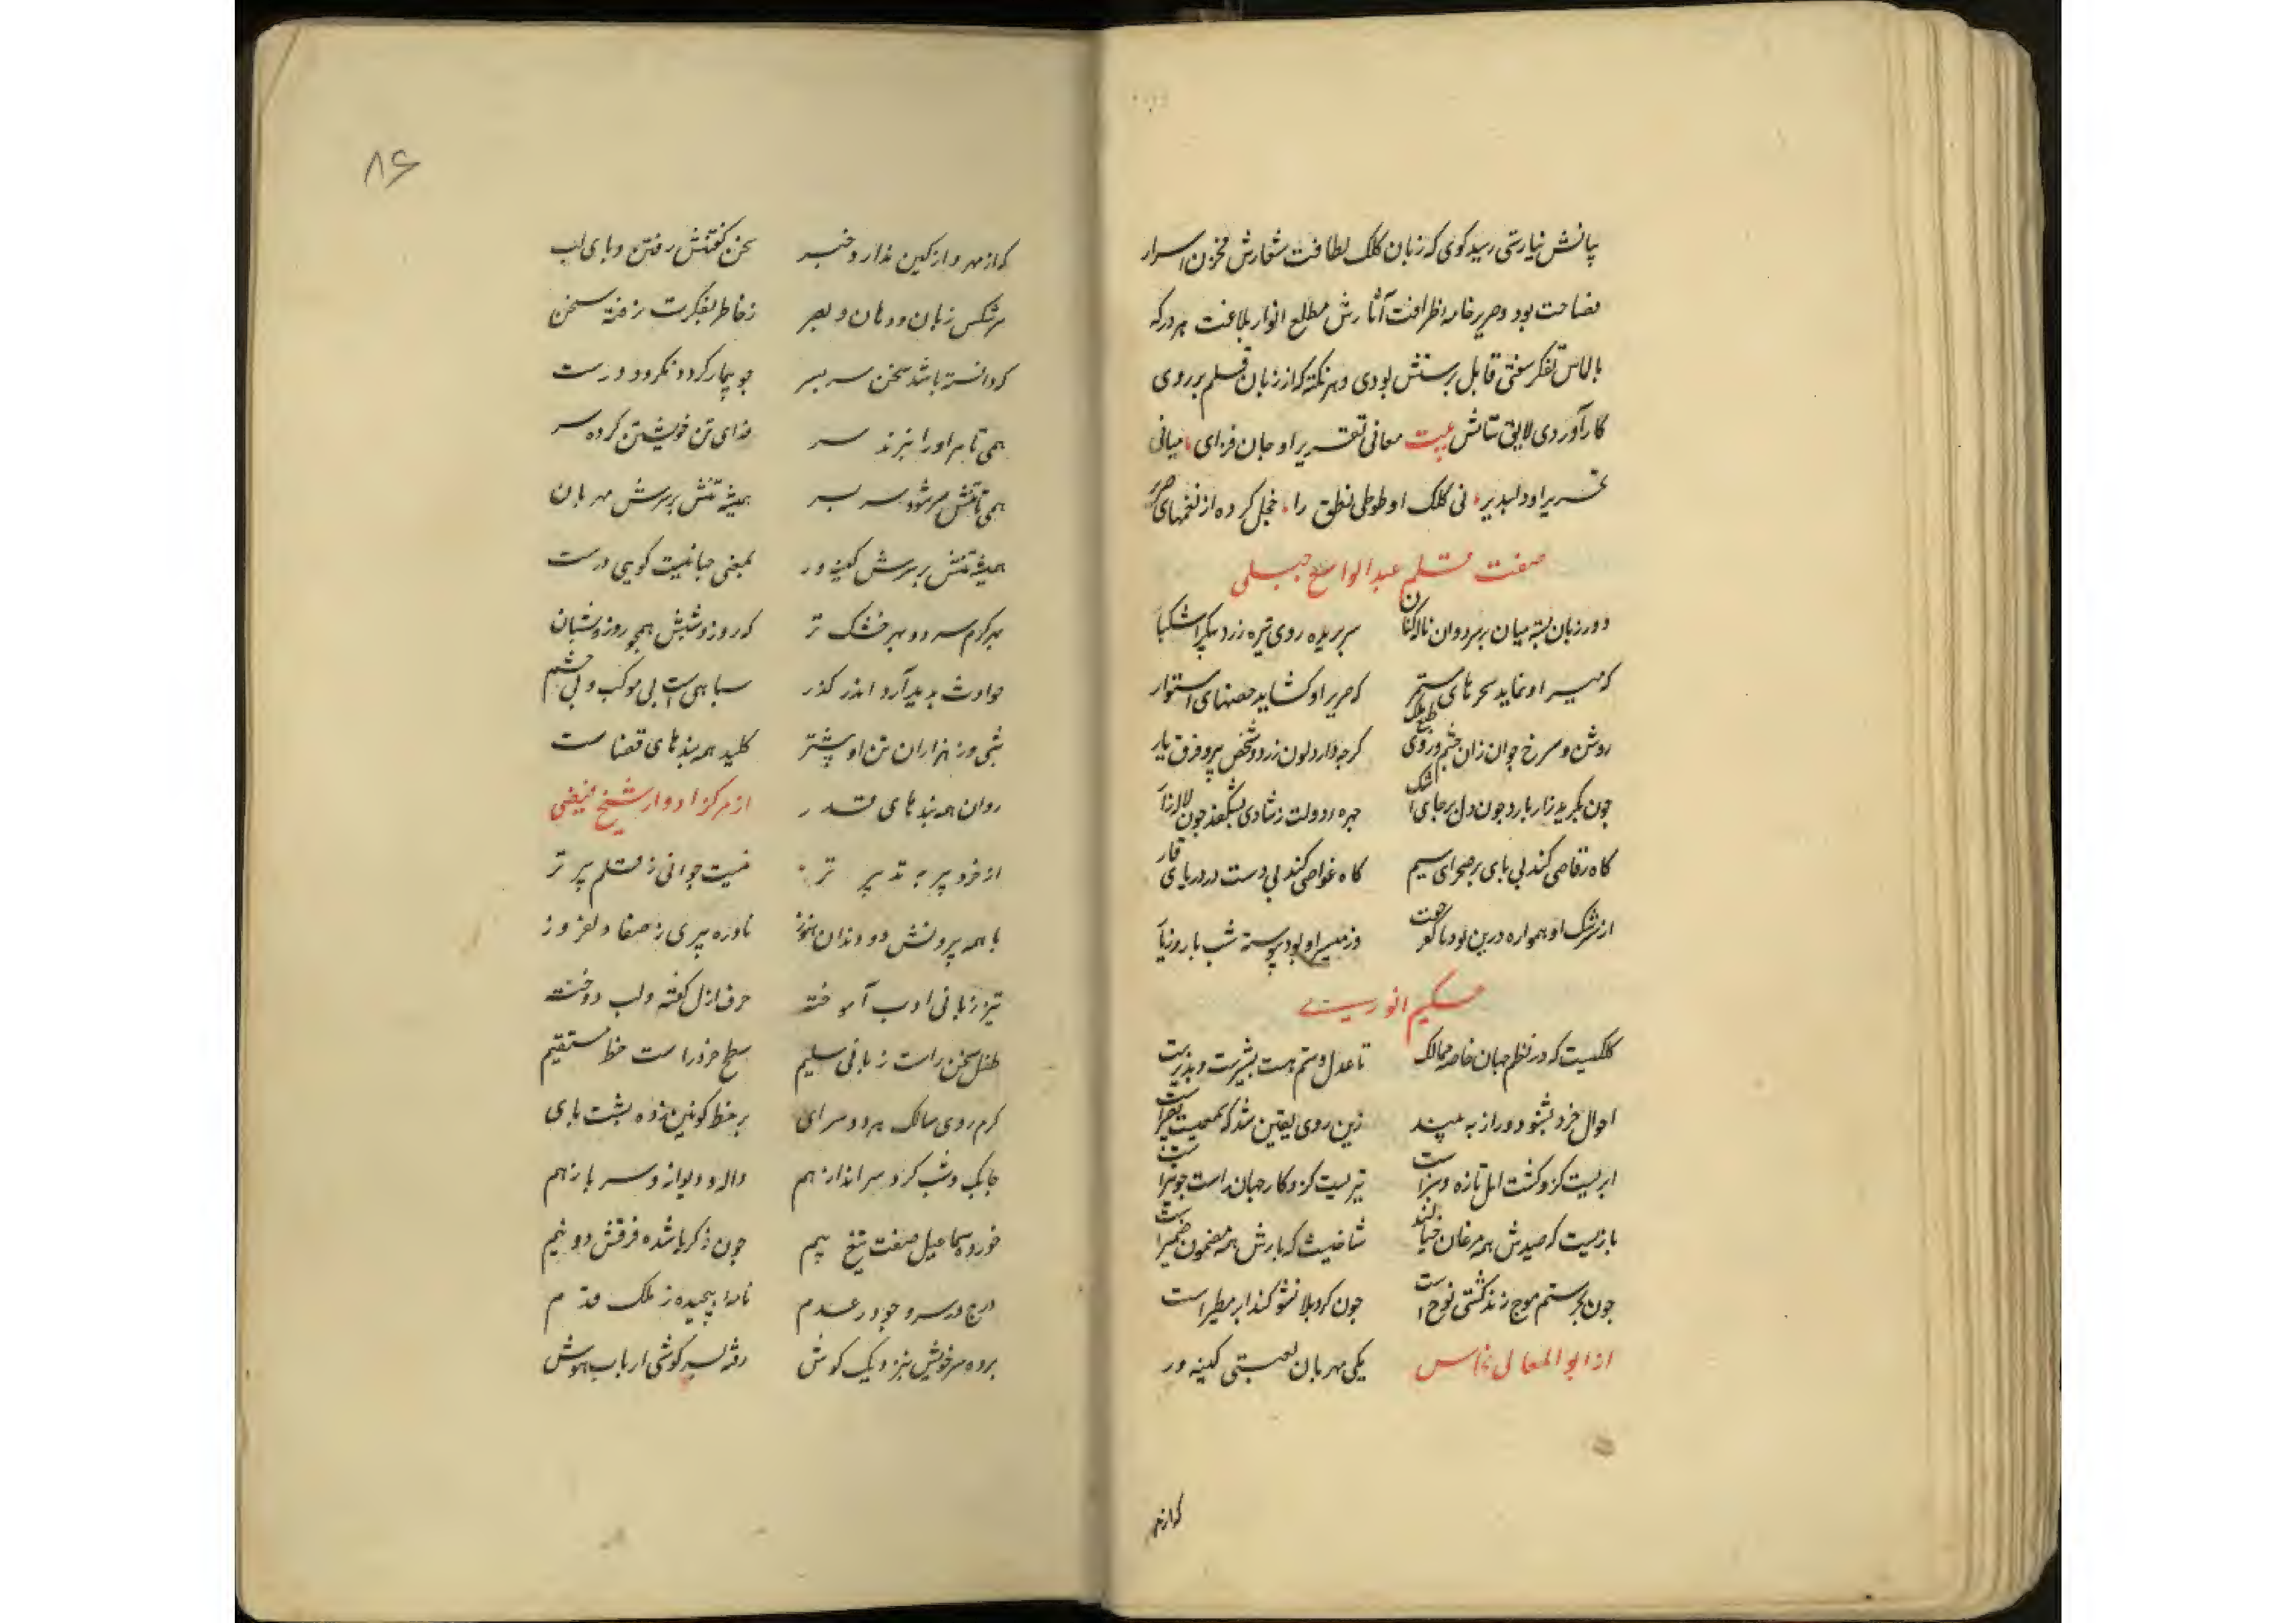 پانش نیارستی رسید کوی که زبان کلک لطافت شعارش مخزن اسرار
فصاحت بود و صریر خامه ظرافت آثارش مطلع انوار بلاغت هر در که
بالماس تفکر سفتی قابل پرستش بودی و هر نکته که از زبان قلم بر روی
کار آوردی لایق ستایش بیت معانی تقریر او جان فزای میانی
تحریر او دلپذیر نی کلک او طوطی نطق را خجل کرده از نغمهای صریر
صفت قلم عبدالواسع جبلی
دور زبان بسته میان بر سر دوان نالان کنان سر بریده روی تیره زرد پیکر اشکبار
که مسیر او نماید سحرهای مستتر که صریر او کشاید حصنهای استوار
روشن و سرخ جوان زان چشم و روی طبع ملک کرچه دارد لون زرد و شخص پیر و فرق یار
چون بکرید زار بارد چون دل بر جای اشک چهره دولت ز شادی بشکفد چون لاله زار
کاه رقاصی کند بی پای بر صحرای سیم کاه غواصی کند بی دست در دریای قار
از سرشک او همواره در پن بود با کعر جفت وز مسیر او بود پیوسته شب با روز یار
حکیم انوری
کلکیست که در نظم جهان خاصه ممالک تا عدل و ستم هست بشیرست و نذیرست
احوال خرد بشنود و راز به بیند زین روی یقین شد که سمیعست بصیرست
ابریست کزو کشت امل تازه و سبز است تیریست کزو کار جهان راست چو تیر است
بازیست که صیدش همه مرغان خیالند شاخیست که بارش همه مضمون ضمیر است
چون بحر ستم موج زند کشتی نوح است چون کرد بلا نشو کند ابر مطیر است
از ابوالمعالی نحاس یکی مهربان لعبتی کینه ور
که از مهر
۸۶
که از مهر و از کین ندارد خبر سخن کفتنش رفتن و پای لب
سرشکس زبان و دهان و بصر ز خاطر بفکرت رفته سخن
که دانسته باشد سخن سر بسر چو بیمار کردد نکردد درست
همی تا مر او را نبرند سر فدای تن خویشتن کرده سر
همی تا تنش مر شود سر بسر همیشه تنش بر سرش مهربان
همیشه تنش بر سرش کینه ور بمعنی جهانیست کویی درست
بهر کرم سرد و بهر خشک تر که روز و شبش همچو روز و شبان
حوادث پدید آرد اندر کذر سپاهیست بی موکب و بی حشم
شجی و ز هزاران تن او بیشتر کلید همه بندهای قضاست
روان همه بندهای قدر از مرکز ادوار شیخ فیضی
از خرد پیر به تدبیر تر نیست جوانی ز قلم پیر تر
با همه پیریش دو دندان هنوز نادره پیری ز صفا دلفروز
تیز زبانی ادب آموخته حرف ازل کفته و لب دوخته
طفل سخن راست زبانی سلیم سطح خرد راست خط مستقیم
کرم روی سالک هر دو سرای بر خط کونین زده پشت پای
چابک و شب کرد و سرانداز هم واله و دیوانه و سر باز هم
خورده سماعیل صفت تیغ بیم چون ذکریا شده فرقش دو نیم
درج درسرو چو در عدم نامه پیچیده ز ملک قدم
برده سر خویش بنزدیک کوش رفته بسر کوشی ارباب هوش